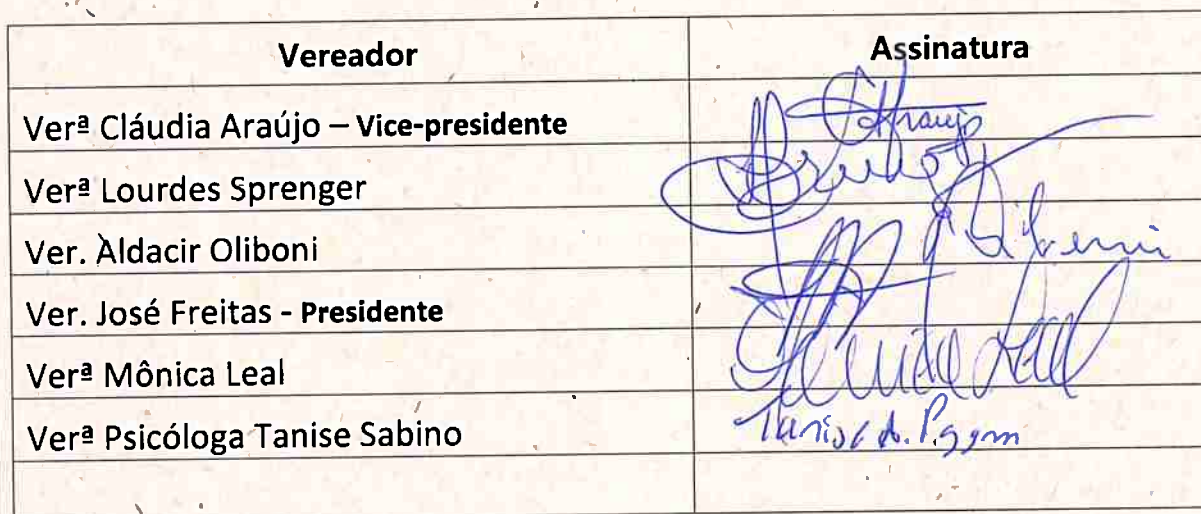 Vereador Assinatura
Verª Cláudia Araújo – Vice-presidente CAraujo
Verª Lourdes Sprenger
Ver. Aldacir Oliboni
Ver. José Freitas - Presidente
Verª Mônica Leal Leal
Verª Psicóloga Tanise Sabino Tanise